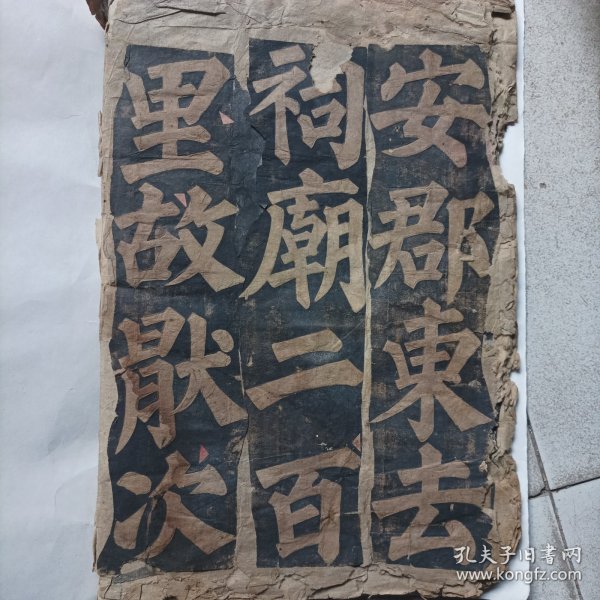 安郡東去
祠廟二百
里故猒次
孔夫子旧书网
www.kongfz.com